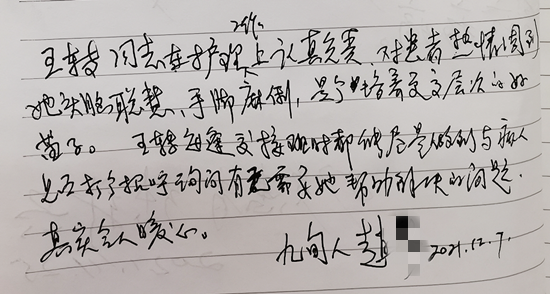 王 同志在护理工作上认真负责，对患者热情周到
她头脑聪慧、手脚麻利，是个培养更高层次的好
苗子。王 每逢交接班时都能尽量 到与病人
见面打个招呼询问有无需要她帮助解决的问题.
真实令人暖心。
九旬人 赵 2021.12.7.